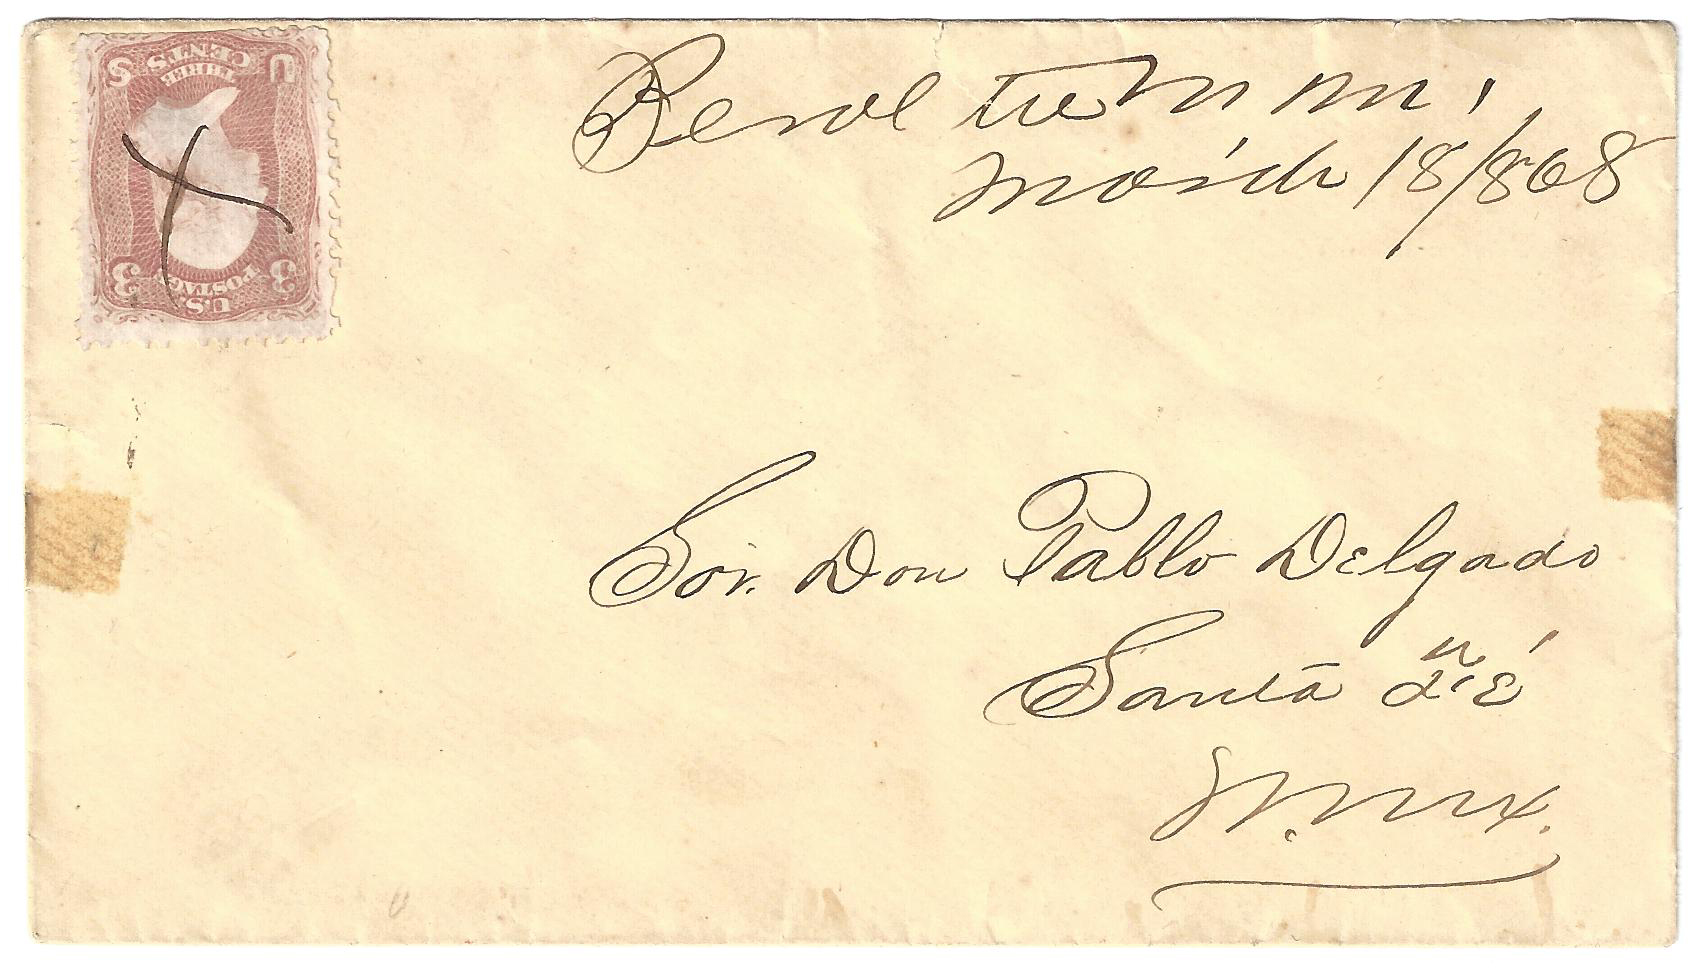 U S
THREE
CENTS
3 3
U.S.
POSTAGE
March 18/868
Sor. Don Pablo Delgado
Santa Fé
N. Mex.